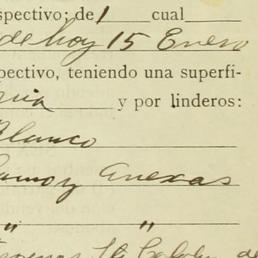 spectivo; de 1 cual
de hoy 15 Enero
pectivo, teniendo una superfi-
y por linderos:
Blanco
y Anexas
" "